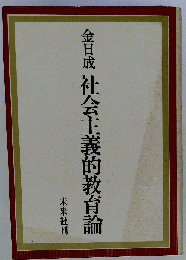 金日成
社会主義的教育論
未来社刊